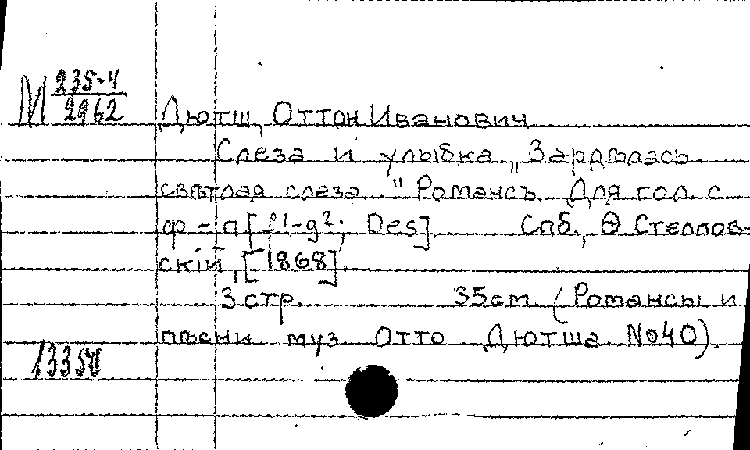 М 235-4
2962
Дютш, Оттон Иванович
Слеза и улыбка „Зардѣлась
свѣтлая слеза..." Романсъ. Для гол. с
ф-п [f1-g²; Des]. Спб., Ѳ Стеллов-
скій, [1868].
3 стр. 35 см. (Романсы и
пѣсни муз. Отто Дютша №40).